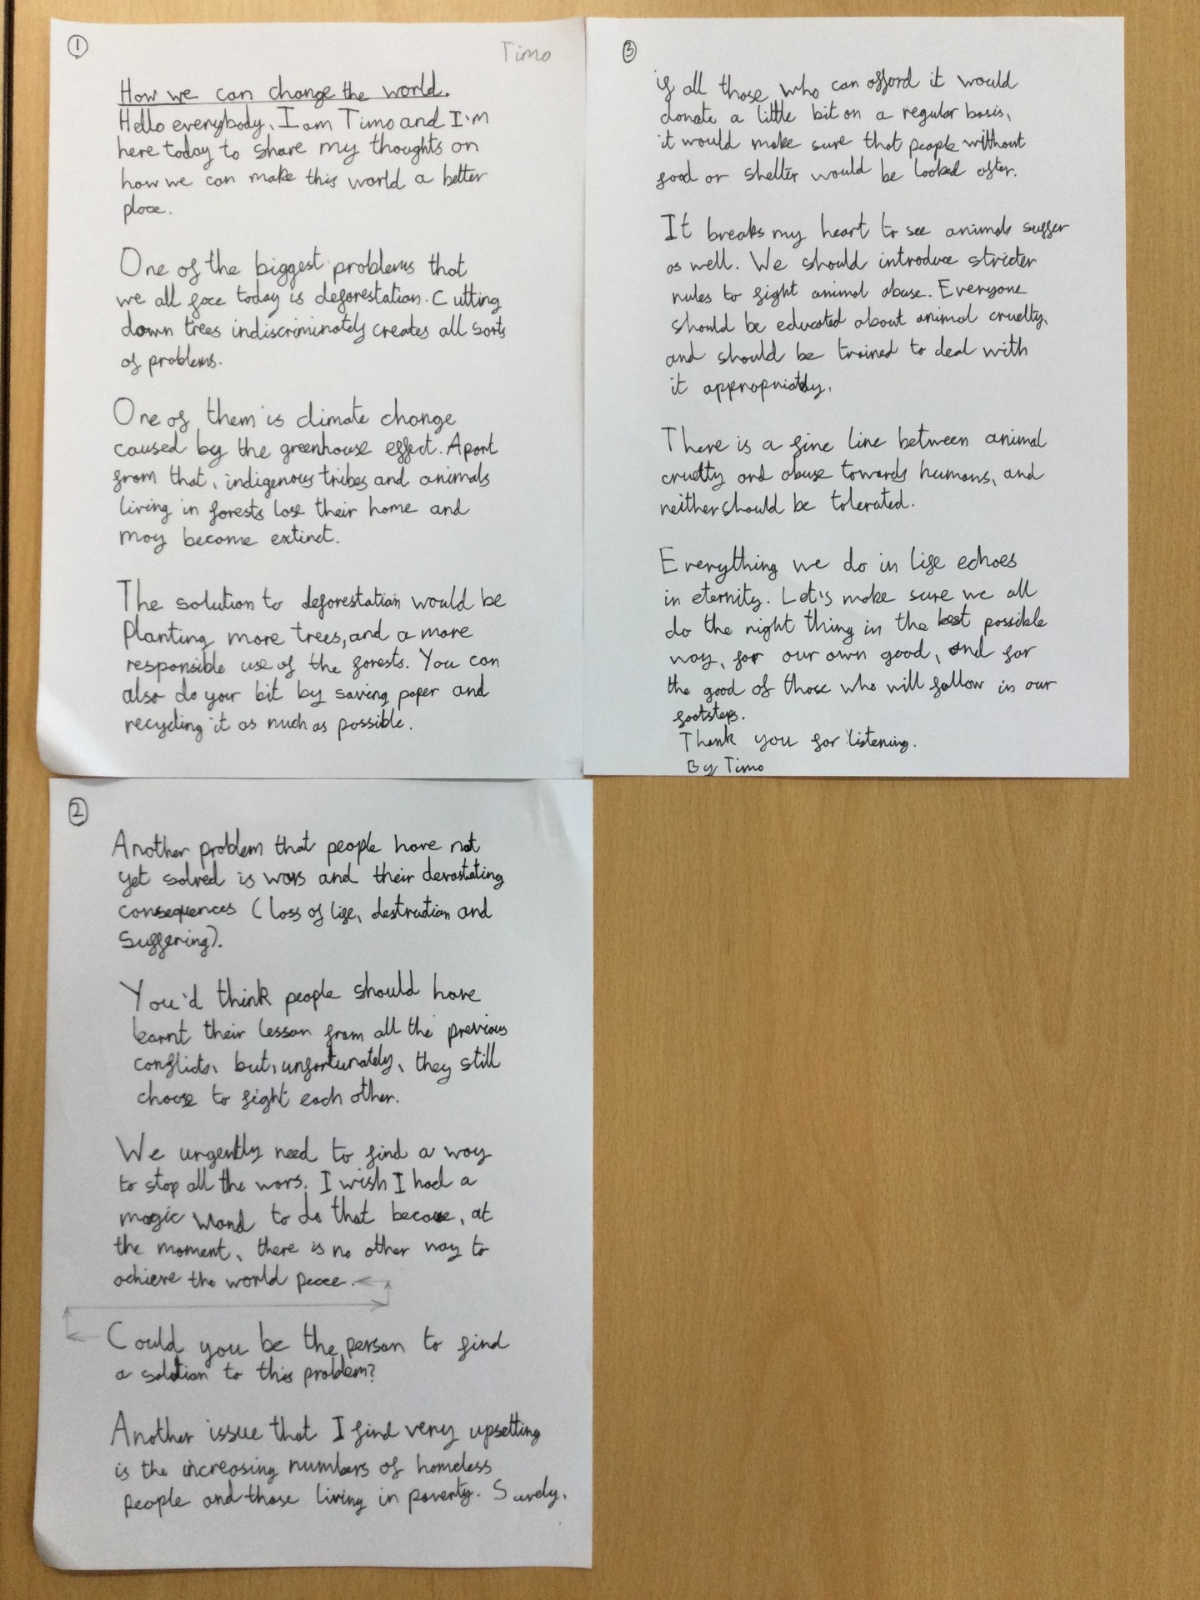 ①
Timo
How we can change the world.
Hello everybody, I am Timo and I'm
here today to share my thoughts on
how we can make this world a better
place.
One of the biggest problems that
we all face today is deforestation. Cutting
down trees indiscriminately creates all sorts
of problems.
One of them is climate change
caused by the greenhouse effect. Apart
from that, indigenous tribes and animals
living in forests lose their home and
may become extinct.
The solution to deforestation would be
planting more trees, and a more
responsible use of the forests. You can
also do your bit by saving paper and
recycling it as much as possible.
②
Another problem that people have not
yet solved is wars and their devastating
consequences (loss of life, destruction and
suffering).
You'd think people should have
learnt their lesson from all the previous
conflicts, but, unfortunately, they still
choose to fight each other.
We urgently need to find a way
to stop all the wars. I wish I had a
magic wand to do that because, at
the moment, there is no other way to
achieve the world peace.
Could you be the person to find
a solution to this problem?
Another issue that I find very upsetting
is the increasing numbers of homeless
people and those living in poverty. Surely,
③
if all those who can afford it would
donate a little bit on a regular basis,
it would make sure that people without
food or shelter would be looked after.
It breaks my heart to see animals suffer
as well. We should introduce stricter
rules to fight animal abuse. Everyone
should be educated about animal cruelty,
and should be trained to deal with
it appropriately.
There is a fine line between animal
cruelty and abuse towards humans, and
neither should be tolerated.
Everything we do in life echoes
in eternity. Let's make sure we all
do the right thing in the best possible
way, for our own good, and for
the good of those who will follow in our
footsteps.
Thank you for listening.
By Timo